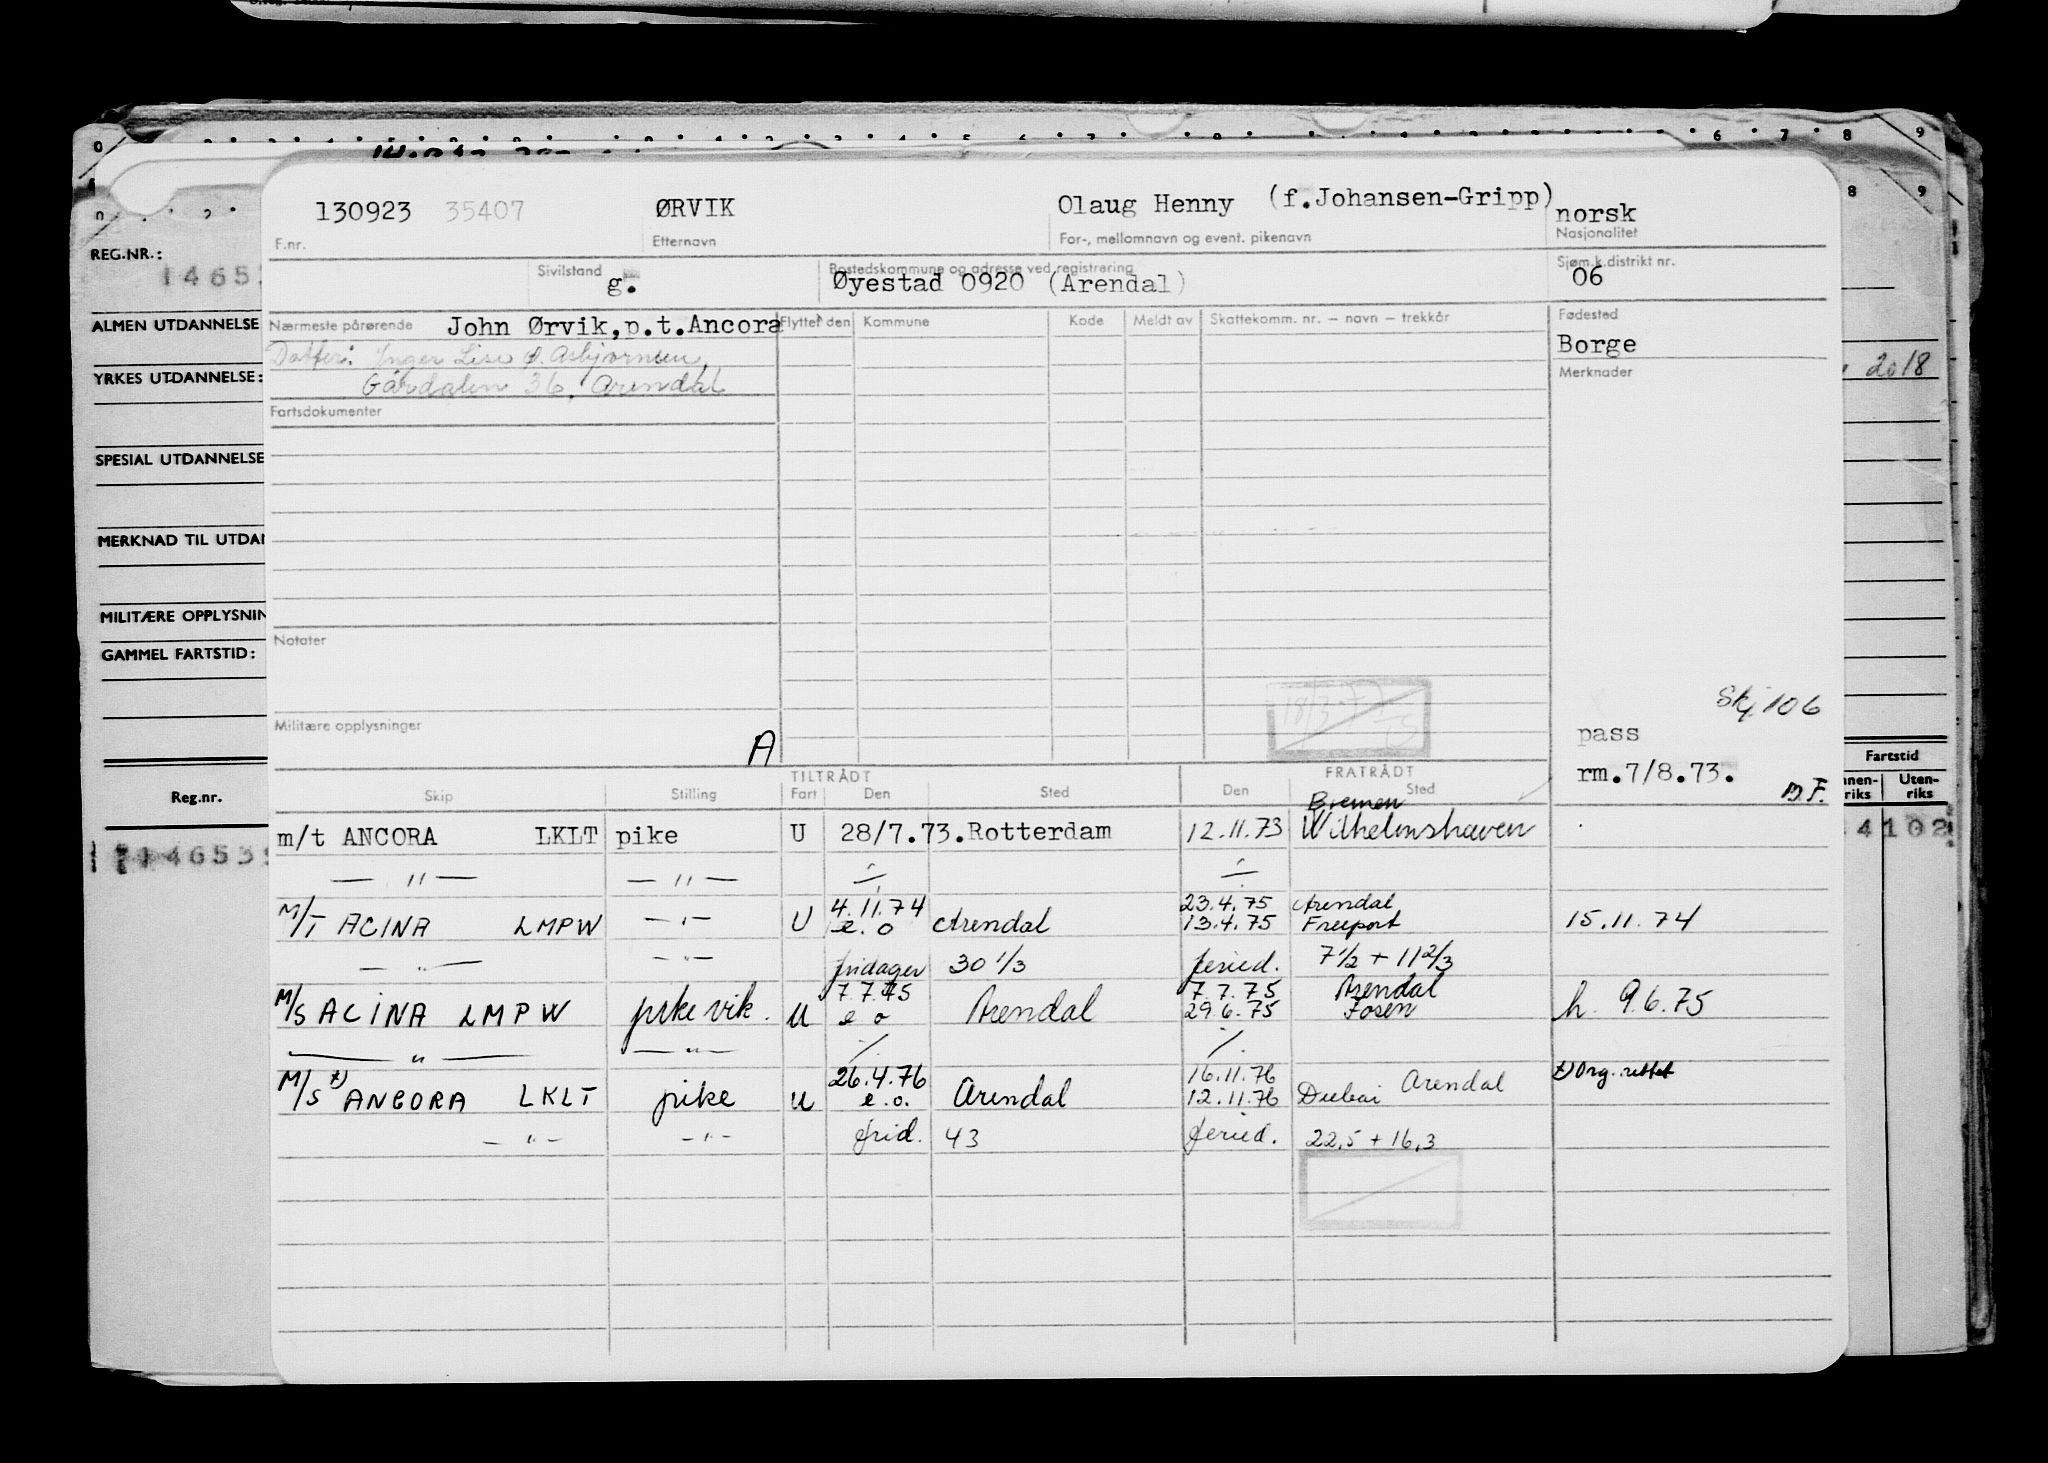 130923 35407 ØRVIK Olaug Henny (f.Johansen-Gripp) norsk
F.nr. Etternavn For-, mellomnavn og event. pikenavn Nasjonalitet
Sivilstand Bostedskommune og adresse ved registrering Sjøm.k.distrikt nr.
g. Øyestad 0920 (Arendal) 06
Nærmeste pårørende John Ørvik,p.t.Ancora Flyttet den Kommune Kode Meldt av Skattekomm. nr. – navn – trekkår Fødested
Borge
Datter: Inger Lise Ø. Asbjørnsen,
Gårdalen 36, Arendal
Merknader
Fartsdokumenter
Notater
18/3-77
Skj 106
Militære opplysninger
A
pass
rm.7/8.73.
B.F.
TILTRÅDT FRATRÅDT
Skip Stilling Fart Den Sted Den Sted
Bremen
m/t ANCORA LKLT pike U 28/7.73. Rotterdam 12.11.73 Wilhelmshaven
— " — — " — ./. ./.
4.11.74 23.4.75 Arendal
M/T ACINA LMPW — " — U e.o Arendal 13.4.75 Freeport 15.11.74
— " — — " — fridager 30 1/3 feried. 7 1/2 + 11 2/3
7.7.75 7.7.75 Arendal
M/S ACINA LMPW pike vik. U e o Arendal 29.6.75 Fosen h. 9.6.75
— " — — " — ./. ./.
26.4.76 16.11.76 Arendal x) Org. rettet
M/S x) ANCORA LKLT pike U e.o. Arendal 12.11.76 Dubai
— " — — " — frid. 43 feried. 22,5 + 16,3
REG.NR.:
14653
ALMEN UTDANNELSE
YRKES UTDANNELSE:
2018
SPESIAL UTDANNELSE
MERKNAD TIL UTDAN
MILITÆRE OPPLYSNIN
GAMMEL FARTSTID:
Reg.nr.
Fartstid
nnen-riks Uten-riks
4102